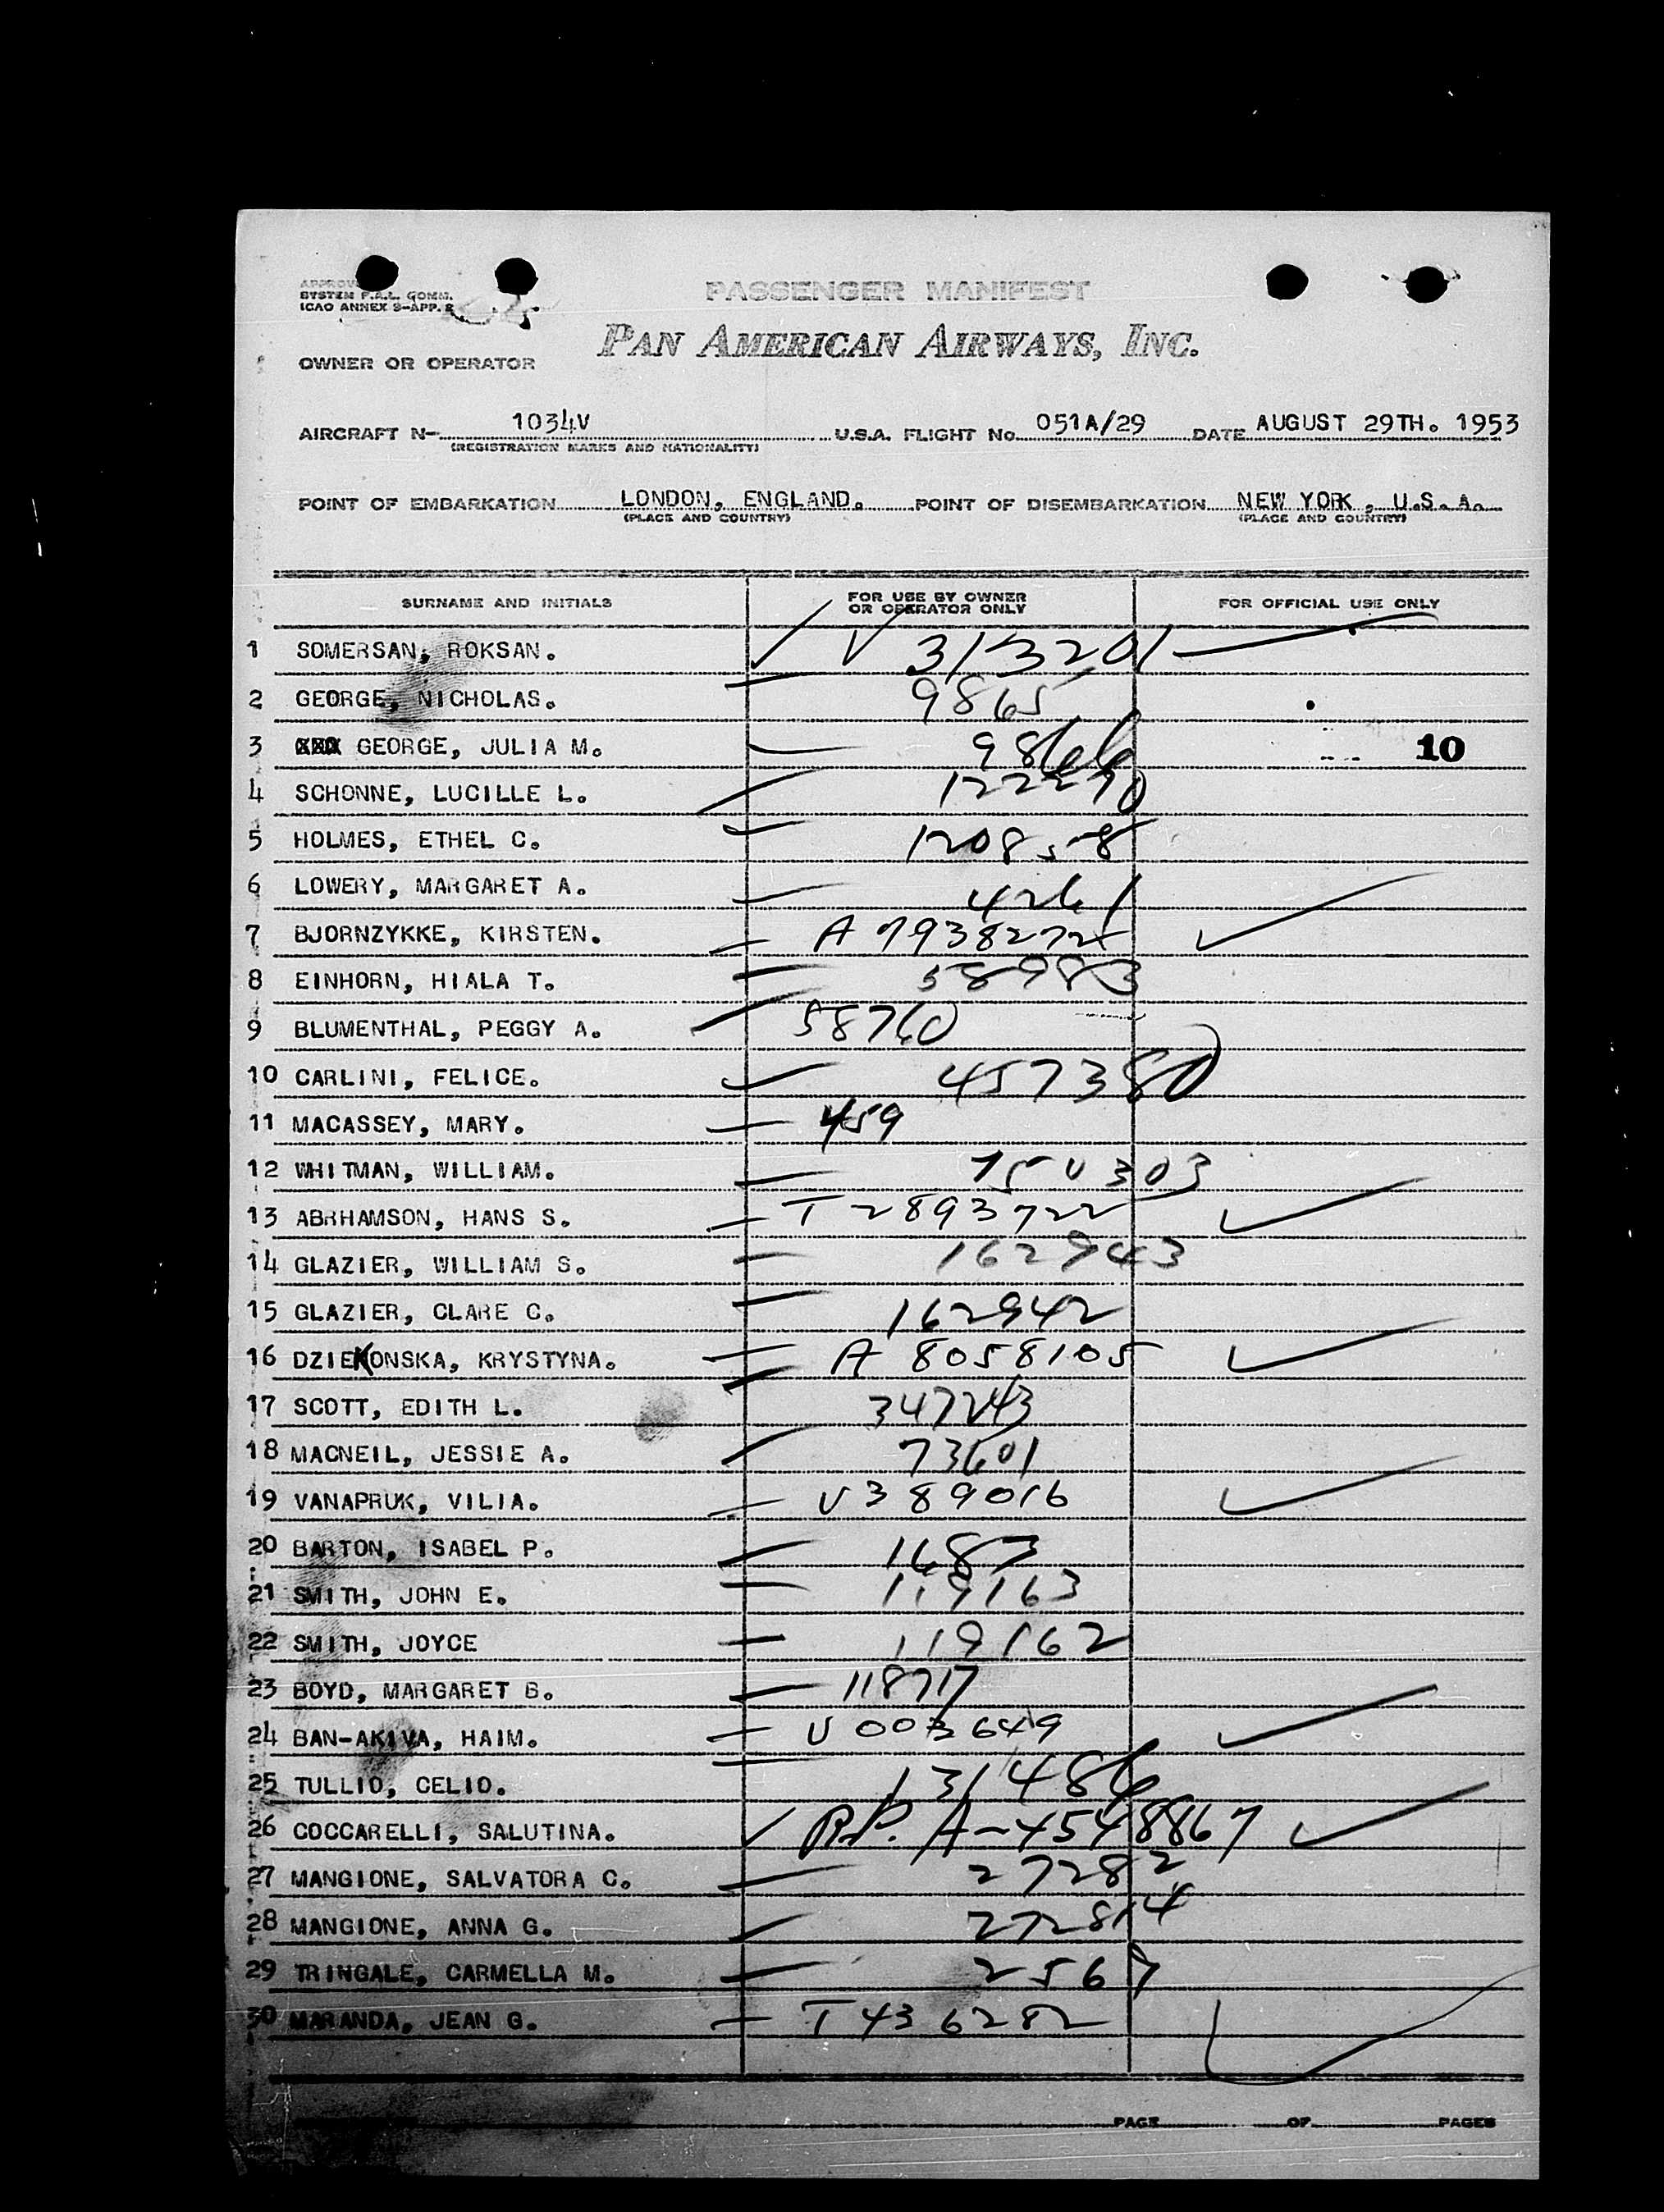 SYSTEM F.A.L. COMM.
ICAO ANNEX 9-APP. 2
PASSENGER MANIFEST
PAN AMERICAN AIRWAYS, INC.
OWNER OR OPERATOR
AIRCRAFT N- 1034V U.S.A. FLIGHT No. 051A/29 DATE AUGUST 29TH. 1953
(REGISTRATION MARKS AND NATIONALITY)
POINT OF EMBARKATION LONDON, ENGLAND. POINT OF DISEMBARKATION NEW YORK, U.S.A.
(PLACE AND COUNTRY) (PLACE AND COUNTRY)
SURNAME AND INITIALS FOR USE BY OWNER OR OPERATOR ONLY FOR OFFICIAL USE ONLY
1 SOMERSAN, ROKSAN. V 313201
2 GEORGE, NICHOLAS. 9865
3 GEORGE, JULIA M. 9866 10
4 SCHONNE, LUCILLE L. 122270
5 HOLMES, ETHEL C. 120858
6 LOWERY, MARGARET A. 4261
7 BJORNZYKKE, KIRSTEN. A 7938272
8 EINHORN, HIALA T. 58983
9 BLUMENTHAL, PEGGY A. 58760
10 CARLINI, FELICE. 457380
11 MACASSEY, MARY. 459
12 WHITMAN, WILLIAM. 150303
13 ABRHAMSON, HANS S. T 2893722
14 GLAZIER, WILLIAM S. 162943
15 GLAZIER, CLARE C. 162942
16 DZIEKONSKA, KRYSTYNA. A 8058105
17 SCOTT, EDITH L. 347243
18 MACNEIL, JESSIE A. 73601
19 VANAPRUK, VILIA. V 389016
20 BARTON, ISABEL P. 1687
21 SMITH, JOHN E. 119163
22 SMITH, JOYCE 119162
23 BOYD, MARGARET B. 118717
24 BAN-AKIVA, HAIM. V 003649
25 TULLIO, CELIO. 131486
26 COCCARELLI, SALUTINA. R.P. A-4548867
27 MANGIONE, SALVATORA C. 27282
28 MANGIONE, ANNA G. 272814
29 TRINGALE, CARMELLA M. 2567
30 MARANDA, JEAN G. T 436282
PAGE OF PAGES